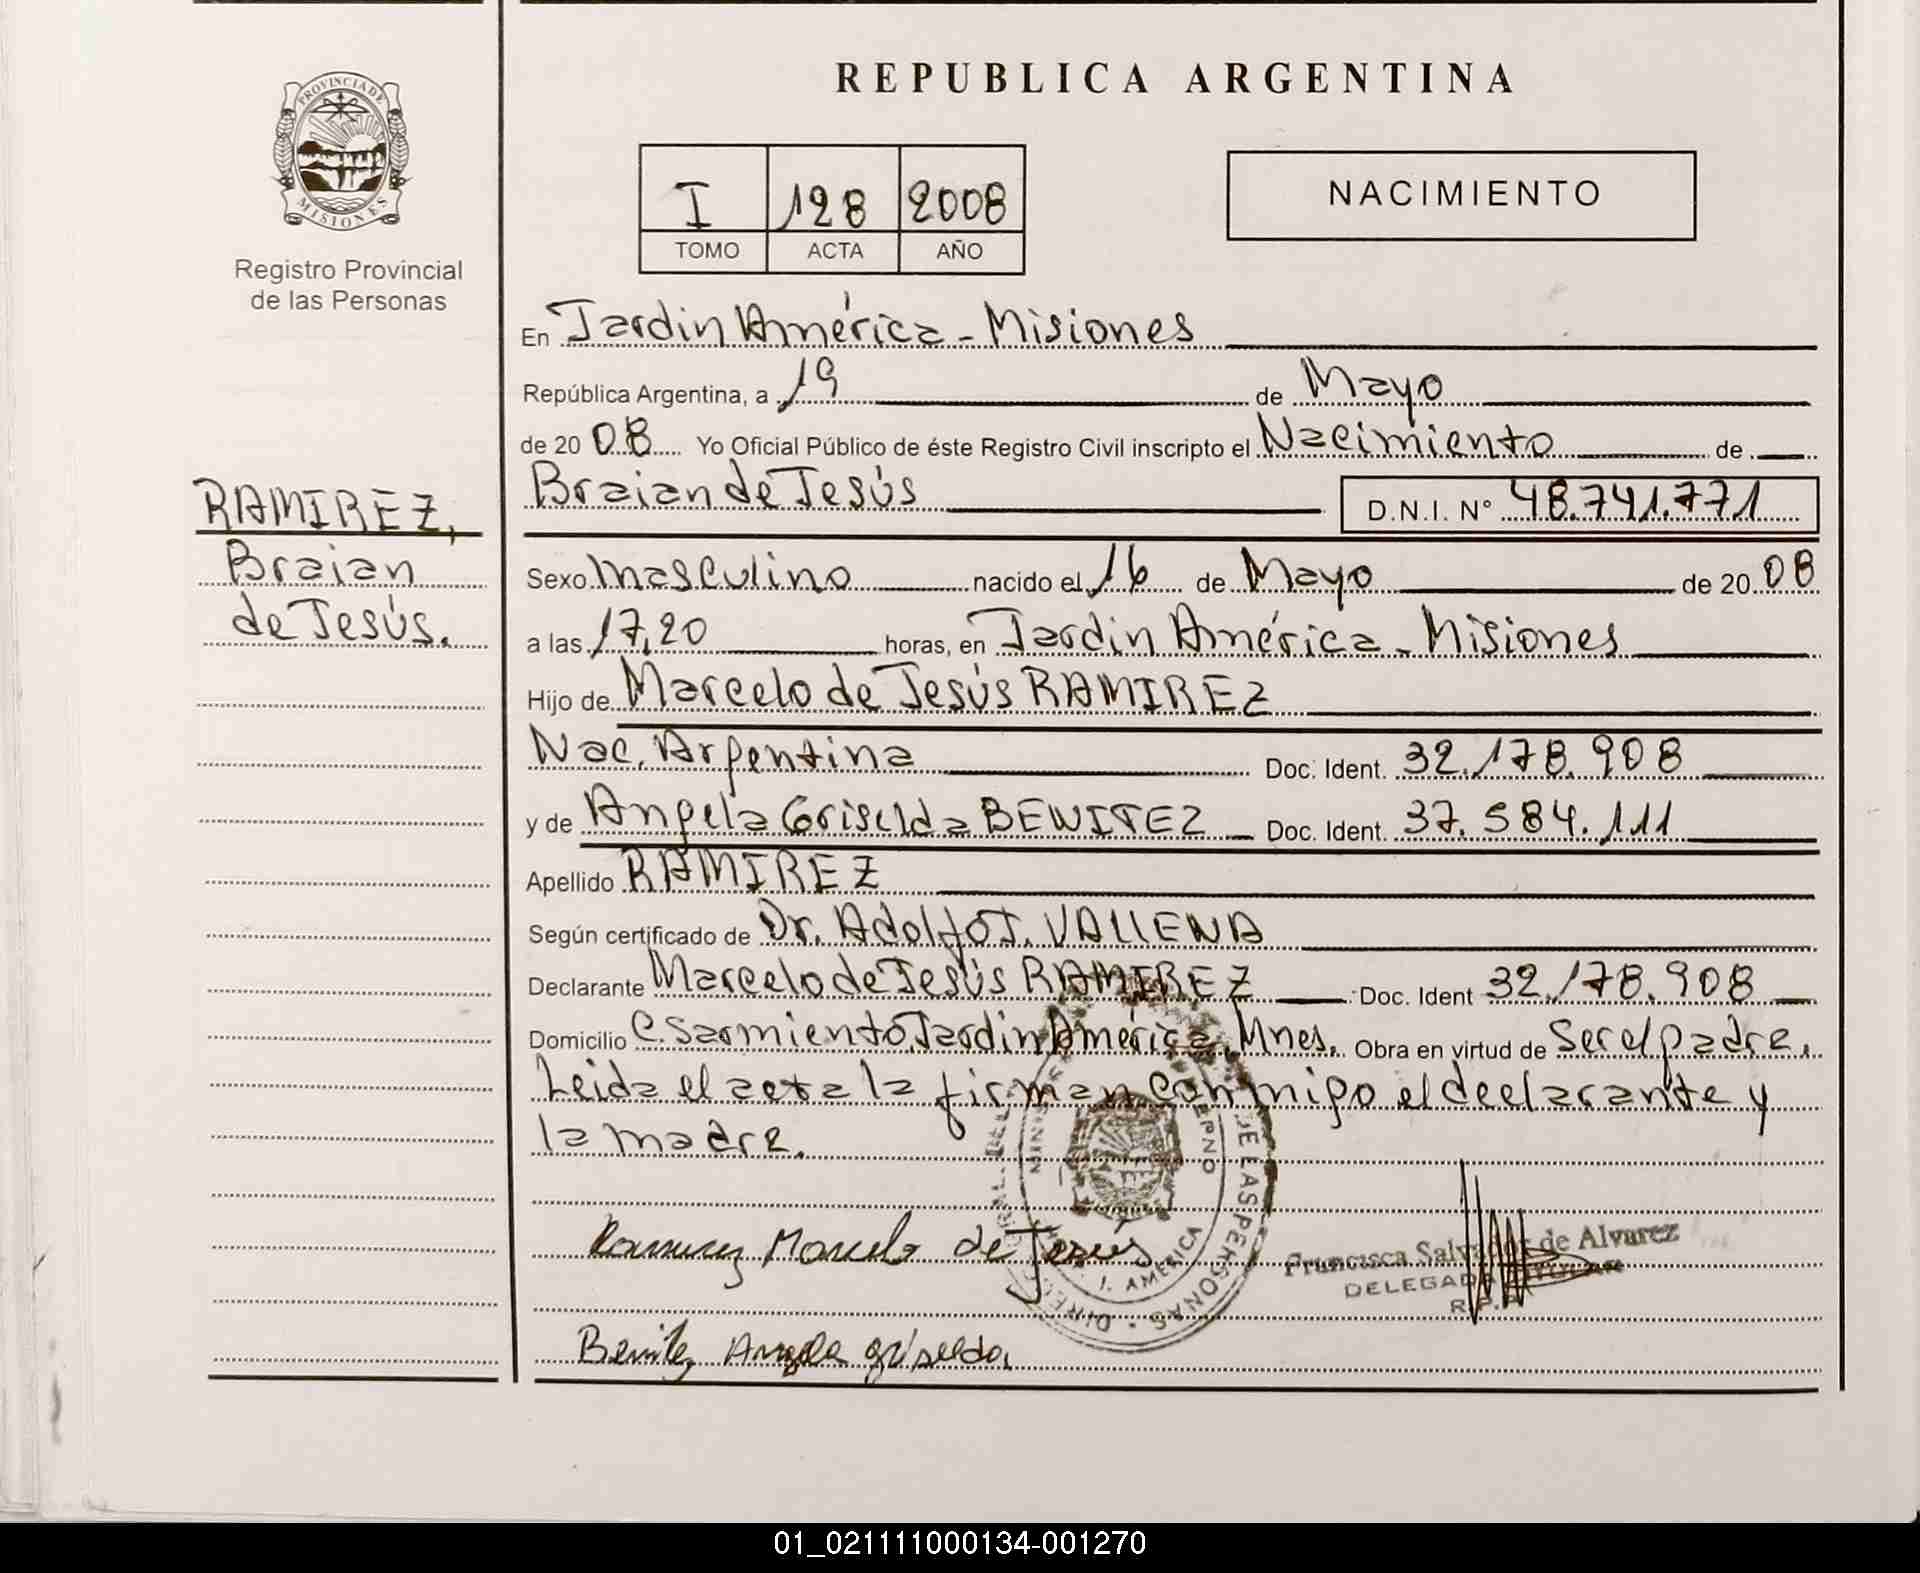 PROVINCIA DE
MISIONES
Registro Provincial
de las Personas
RAMIREZ,
Braian
de Jesús.
REPUBLICA ARGENTINA
I 128 2008
TOMO ACTA AÑO
NACIMIENTO
En Jardin América - Misiones
República Argentina, a 19 de Mayo
de 20 08 Yo Oficial Público de éste Registro Civil inscripto el Nacimiento de
Braian de Jesús D.N.I. N° 48.741.771
Sexo Masculino nacido el 16 de Mayo de 20 08
a las 17,20 horas, en Jardin América - Misiones
Hijo de Marcelo de Jesús RAMIREZ
Nac. Argentina Doc. Ident. 32.178.908
y de Angela Griselda BENITEZ Doc. Ident. 37.584.111
Apellido RAMIREZ
Según certificado de Dr. Adolfo J. VALLENA
Declarante Marcelo de Jesús RAMIREZ Doc. Ident 32.178.908
Domicilio C. Sarmiento, Jardin América, Mnes. Obra en virtud de Ser el padre.
Leida el acta la firman conmigo el declarante y
la madre.
Ramirez Marcelo de Jesús
DE LAS PERSONAS
J. AMERICA
Francisca Salvador de Alvarez
DELEGADA TITULAR
Benitez Angela griselda
01_021111000134-001270